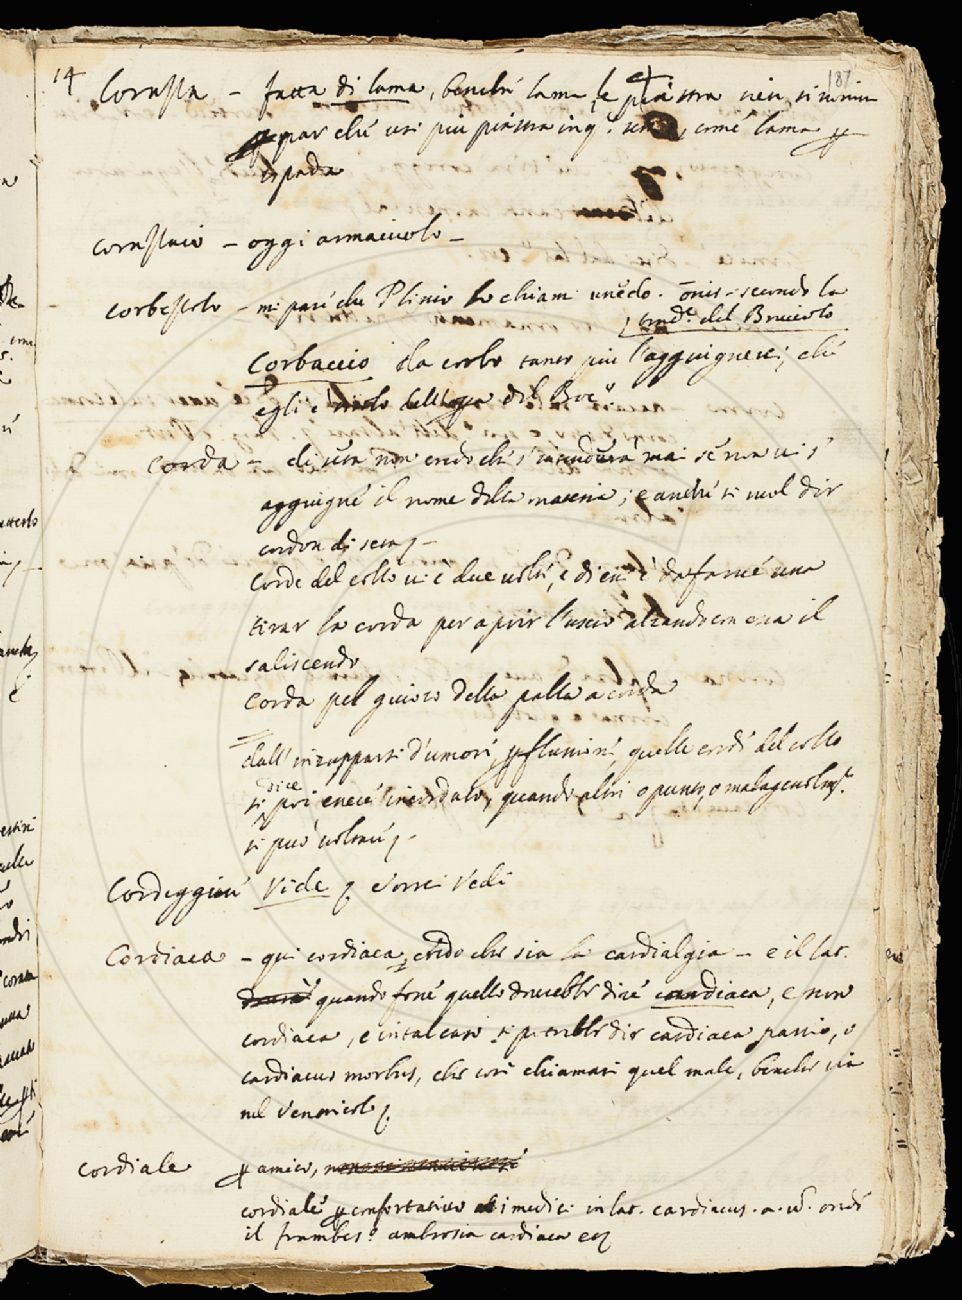 14 187
Corazza - fatta di lama, benché lama, e piastra sien sinonimi
par che usi più piastra in q. senso, come lama p
ispada
corazzaio - oggi armaiuolo -
corbezzolo - mi pare che Plinio lo chiami unedo. onis - secondo la
Crud.ª del Bruciolo
Corbaccio da corbo tanto più l'aggiugnerei, che
egli è titolo dell'opa del Bocc.
corda - di seta non credo che s'intenda mai se non vi s'
aggiugne il nome della materia; e anche si vuol dir
cordon di seta -
Corde del collo vi è due volte, e di cui è da farne una
tirar la corda per aprir l'uscio alzando con essa il
saliscendo
corda pel giuoco della palla a corda
dall'inzupparsi d'umori, p flussioni, quelle corde del collo
dice
si poi enece incordato, quando altri o punto o malagevolm.te
si può voltare.
Cordeggiare Vide vorrei Vedi
Cordiaca - qui cordiaca, credo che sia la cardialgia - e il lat.
quando fone quello dovrebbe dire cardiaca, e non
cordiaca, e in tal caso si potrebbe dir cardiaca passio, o
cardiacus morbus, che così chiamasi quel male, benche sia
nel Ventricolo.
Cordiale p amico,
cordiale p confortativo i medici in lat. cardiacus. a. u. onde
il frambes. ambrosia cardiaca ec